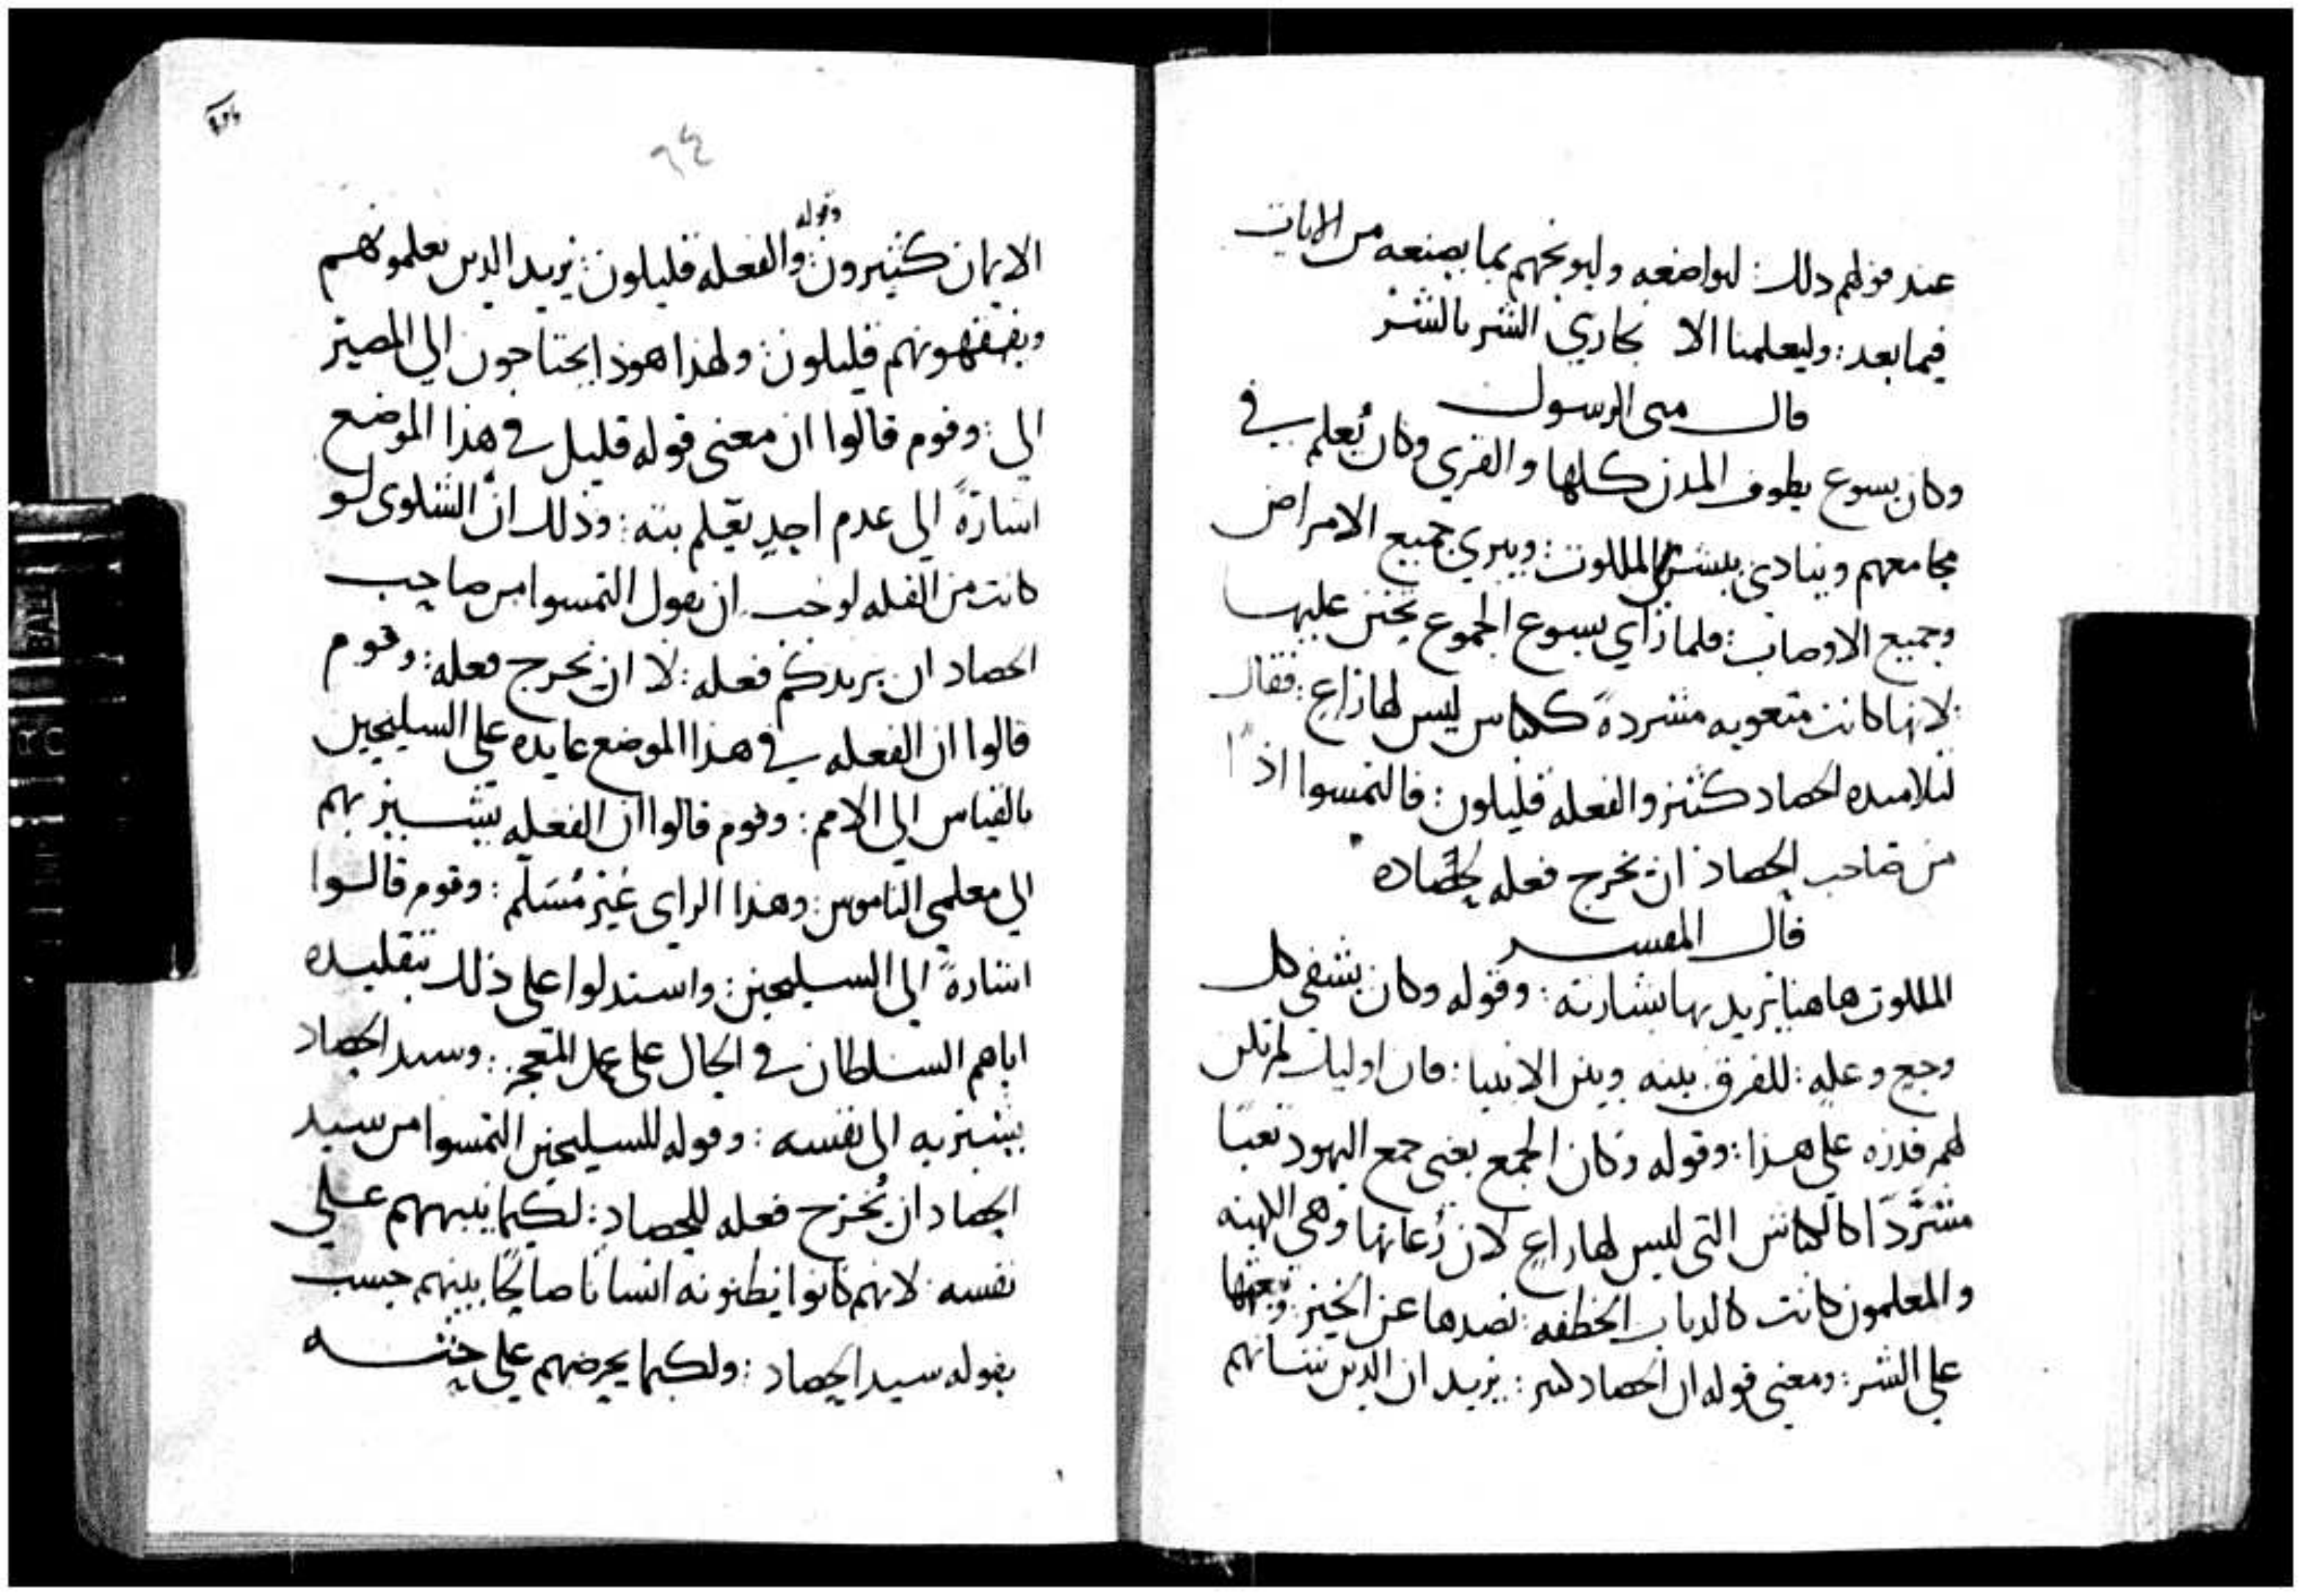 عند قولهم ذلك: لتواضعه وليوبخهم بما يصنعه من الايات
فيما بعد: وليعلمنا الا نجازي الشر بالشر
قال متى الرسول
وكان يسوع يطوف المدن كلها والقرى وكان يُعلم في
مجامعهم وينادي ببشرى الملكوت: ويبري جميع الامراض
وجميع الاوصاب: فلما راي يسوع الجموع تحنن عليها
لانها كانت متعوبه مشردةً ككباش ليس لها راعٍ: فقال
لتلاميده الحصاد كثير والفعله قليلون: فالتمسوا اذًا
من صاحب الحصاد ان يخرج فعله لحصاده
قال المفسر
الملكوت هاهنا يريد بها بشارته: وقوله وكان يشفي كل
وجع وعله: للفرق بينه وبين الانبيا: فان اوليك لم تكن
لهم قدره على هذا: وقوله وكان الجمع يعنى جمع اليهود تعبًا
مشرّدًا كالكباش التى ليس لها راعٍ لان رُعاتها وهي الكهنه
والمعلمون كانت كالدياب الخطفه: تصدها عن الخير: وتبعثها
على الشر: ومعنى قوله ان الحصاد كثير: يريد ان الدين شانهم
٦٤
وقوله
الايمان كثيرون: والفعله قليلون: يريد الدين يعلمونهم
ويفقهونهم قليلون: ولهذا هوذا يحتاجون الى المصير
الى: وقوم قالوا ان معنى قوله قليل في هذا الموضع
اشارةً الى عدم احدٍ يعلم بته: وذلك انّ الشلوى لو
كانت من القله لوجب ان يقول التمسوا من صاحب
الحصاد ان يزيدكم فعله: لا ان يخرج فعله: وقوم
قالوا ان الفعله في هذا الموضع عايده على السليحين
بالقياس الى الامم: وقوم قالوا ان الفعله يشير بهم
الى معلمي الناموس: وهذا الراى غير مُسَلَّم: وقوم قالوا
اشارةً الى السليحين: واستدلوا على ذلك بتقليده
اياهم السلطان في الحال على عمل المعجز: وسيد الحصاد
يشير به الى نفسه: وقوله للسليحين التمسوا من سيد
الحصاد ان يُخرج فعله للحصاد: لكيما ينبههم على
نفسه: لانهم كانوا يظنونه انسانا صالحًا بينهم حسب
بقوله سيد الحصاد: ولكيما يحرضهم على